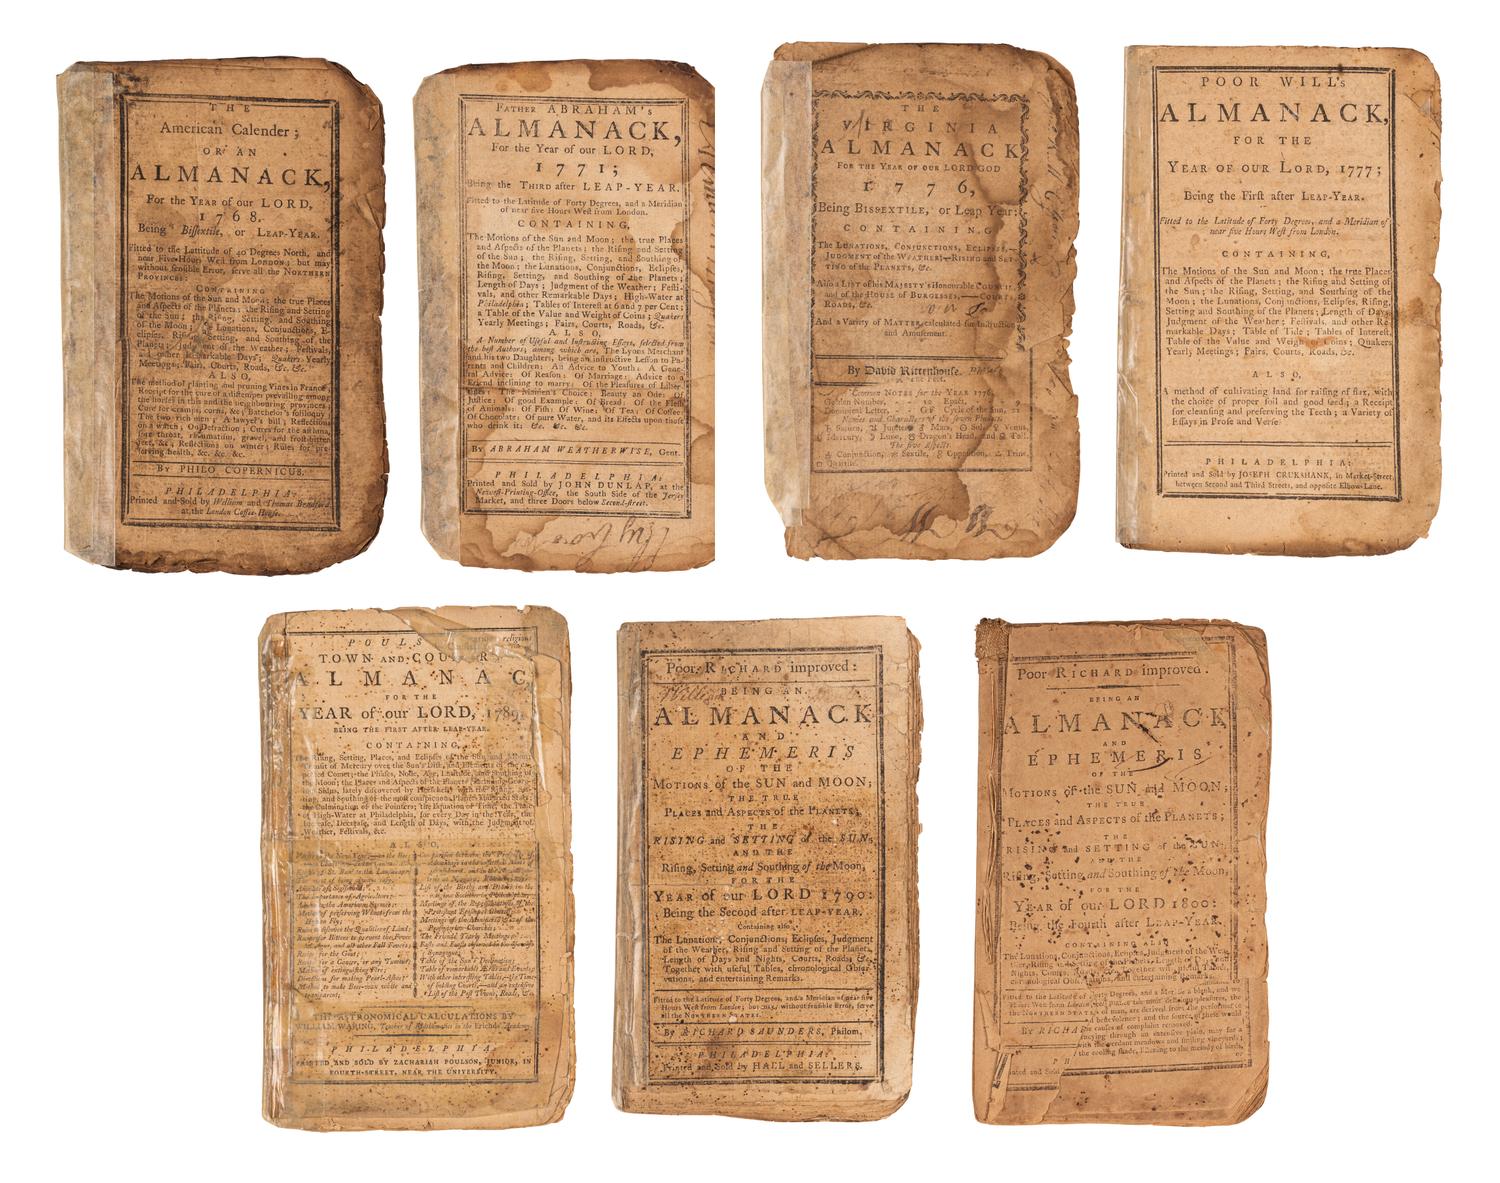 THE
American Calender;
OR AN
ALMANACK,
For the YEAR of our LORD,
1768.
Being Bissextile, or LEAP-YEAR.
Fitted to the Lattitude of 40 Degrees North, and
near Five Hours West from LONDON; but may
without sensible Error, serve all the NORTHERN
PROVINCES.
CONTAINING
The Motions of the Sun and Moon; the true Places
and Aspects of the Planets; the Rising and Setting
of the Sun; the Rising, Setting, and Southing
of the Moon; the Lunations, Conjunctions, E-
clipses, Rising, Setting, and Southing of the
Planets; Judgment of the Weather; Festivals,
and other Remarkable Days; Quakers Yearly
Meetings; Fairs, Courts, Roads, &c. &c.
ALSO,
The method of planting and pruning Vines in France
Receipt for the cure of a distemper prevailing among
the horses in this and the neighbouring provinces;
Cure for cramps, corns, &c; Batchelor's soliloquy
The two rich men; A lawyer's bill; Reflections
on a watch; On Detraction; Cures for the asthma,
sore throat, rheumatism, gravel, and frost-bitten
feet, &c; Reflections on winter; Rules for pre-
serving health, &c. &c. &c.
By PHILO COPERNICUS.
PHILADELPHIA:
Printed and Sold by William and Thomas Bradford
at the London Coffee-House.
FATHER ABRAHAM's
ALMANACK,
For the Year of our LORD,
1771;
Being the THIRD after LEAP-YEAR.
Fitted to the Latitude of Forty Degrees, and a Meridian
of near five Hours West from London.
CONTAINING,
The Motions of the Sun and Moon; the true Places
and Aspects of the Planets; the Rising and Setting
of the Sun; the Rising, Setting, and Southing of
the Moon; the Lunations, Conjunctions, Eclipses,
Rising, Setting, and Southing of the Planets;
Length of Days; Judgment of the Weather; Festi-
vals, and other Remarkable Days; High-Water at
Philadelphia; Tables of Interest at 6 and 7 per Cent;
a Table of the Value and Weight of Coins; Quakers
Yearly Meetings; Fairs, Courts, Roads, &c.
ALSO,
A Number of Useful and Instructing Essays, selected from
the best Authors; among which are, The Lyons Merchant
and his two Daughters, being an instructive Lesson to Pa-
rents and Children: An Advice to Youth: A Gene-
ral Advice: Of Reason: Of Marriage: Advice to a
Friend inclining to marry: Of the Pleasures of Liber
ties: The Maiden's Choice: Beauty an Ode: Of
Justice: Of good Example: Of Bread: Of the Flesh
of Animals: Of Fish: Of Wine: Of Tea: Of Coffee:
Of Chocolate: Of pure Water, and its Effects upon those
who drink it: &c. &c. &c.
By ABRAHAM WEATHERWISE, Gent.
PHILADELPHIA:
Printed and Sold by JOHN DUNLAP, at the
Newest-Printing-Office, the South Side of the Jersey
Market, and three Doors below Second-street.
THE
VIRGINIA
ALMANACK
FOR THE YEAR OF OUR LORD GOD
1776,
Being BISSEXTILE, or Leap Year:
CONTAINING
The LUNATIONS, CONJUNCTIONS, ECLIPSES,
JUDGMENT of the WEATHER;—RISING and SET-
TING of the PLANETS, &c.
Also a LIST of his MAJESTY's Honourable COUNCIL
and of the HOUSE of BURGESSES,—COURTS,
ROADS, &c.
And a Variety of MATTER calculated for Instruction
and Amusement.
By David Rittenhouse.
COMMON NOTES for the YEAR 1776.
Golden Number, 10 Epact,
Dominical Letter, GF Cycle of the Sun, 21
Names and Characters of the seven Planets
♄ Saturn, ♃ Jupiter, ♂ Mars, ☉ Sol, ♀ Venus,
☿ Mercury, ☽ Luna, ☊ Dragon's Head, and ☋ Tail.
The five Aspects.
☌ Conjunction, ⚹ Sextile, ☍ Opposition, △ Trine,
□ Quartile.
POOR WILL's
ALMANACK,
FOR THE
YEAR OF OUR LORD, 1777;
Being the First after LEAP-YEAR.
Fitted to the Latitude of Forty Degrees, and a Meridian of
near five Hours West from London.
CONTAINING,
The Motions of the Sun and Moon; the true Places
and Aspects of the Planets; the Rising and Setting of
the Sun; the Rising, Setting, and Southing of the
Moon; the Lunations, Conjunctions, Eclipses, Rising,
Setting and Southing of the Planets; Length of Days
Judgment of the Weather; Festivals, and other Re
markable Days; Table of Tide; Tables of Interest,
Table of the Value and Weight of Coins; Quakers
Yearly Meetings; Fairs, Courts, Roads, &c.
ALSO,
A method of cultivating land for raising of flax, with
the choice of proper soil and good seed; a Receipt
for cleansing and preserving the Teeth; a Variety of
Essays in Prose and Verse
PHILADELPHIA:
Printed and Sold by JOSEPH CRUKSHANK, in Market-Street,
between Second and Third Streets, and opposite Elbow-Lane.
POULS
religious
TOWN AND COUNTRY
ALMANAC,
FOR THE
YEAR of our LORD, 1789,
BEING THE FIRST AFTER LEAP-YEAR.
CONTAINING,
The Rising, Setting, Places, and Eclipses of the Sun and Moon;
Transit of Mercury over the Sun's Disk, and Elements of the ex-
pected Comet; the Phases, Node, Age, Latitude, and Southing of
the Moon; the Places and Aspects of the Planets including Geor-
gium Sidus, lately discovered by Herschel; with the Rising, Set-
ting, and Southing of the most conspicuous Planets and fixed Stars;
the Culmination of the Pointers; the Equation of Time; the Time
of High-Water at Philadelphia, for every Day in the Year, the
Increase, Decrease, and Length of Days, with the Judgment of
Weather, Festivals, &c.
ALSO,
The Importance of Agriculture;
Method of preserving Wheat from the
Hessian Fly;
Receipt for the Gout;
Method of extinguishing Fire;
Table of the Sun's Declination;
List of the Post Towns, Roads, &c.
THE ASTRONOMICAL CALCULATIONS BY
WILLIAM WARING, Teacher of Mathematics in the Friends' Academy.
PHILADELPHIA:
PRINTED AND SOLD BY ZACHARIAH POULSON, JUNIOR, IN
FOURTH-STREET, NEAR THE UNIVERSITY.
Poor RICHARD improved:
BEING AN
ALMANACK
AND
EPHEMERIS
OF THE
MOTIONS of the SUN and MOON;
THE TRUE
PLACES and ASPECTS of the PLANETS;
THE
RISING and SETTING of the SUN;
AND THE
Rising, Setting and Southing of the Moon,
FOR THE
YEAR of our LORD 1790:
Being the Second after LEAP-YEAR.
Containing also,
The Lunations, Conjunctions, Eclipses, Judgment
of the Weather, Rising and Setting of the Planets,
Length of Days and Nights, Courts, Roads, &c.
Together with useful Tables, chronological Obser-
vations, and entertaining Remarks.
Fitted to the Latitude of Forty Degrees, and a Meridian of near five
Hours West from London; but may, without sensible Error, serve
all the NORTHERN STATES.
By RICHARD SAUNDERS, Philom.
PHILADELPHIA:
Printed and Sold by HALL and SELLERS.
Poor RICHARD improved:
BEING AN
ALMANACK
AND
EPHEMERIS
OF THE
MOTIONS of the SUN and MOON;
THE TRUE
PLACES and ASPECTS of the PLANETS;
THE
RISING and SETTING of the SUN;
AND THE
Rising, Setting and Southing of the Moon,
FOR THE
YEAR of our LORD 1800:
Being the Fourth after LEAP-YEAR.
CONTAINING ALSO
The Lunations, Conjunctions, Eclipses, Judgment of the Wea-
Fitted to the Latitude of Forty Degrees, and a Meridian
the NORTHERN STATES
By RICHA
the causes of complaint removed.
the verdant meadows and smiling vineyards;
the cooling shade, listening to the melody of birds,
PH
Printed and Sold